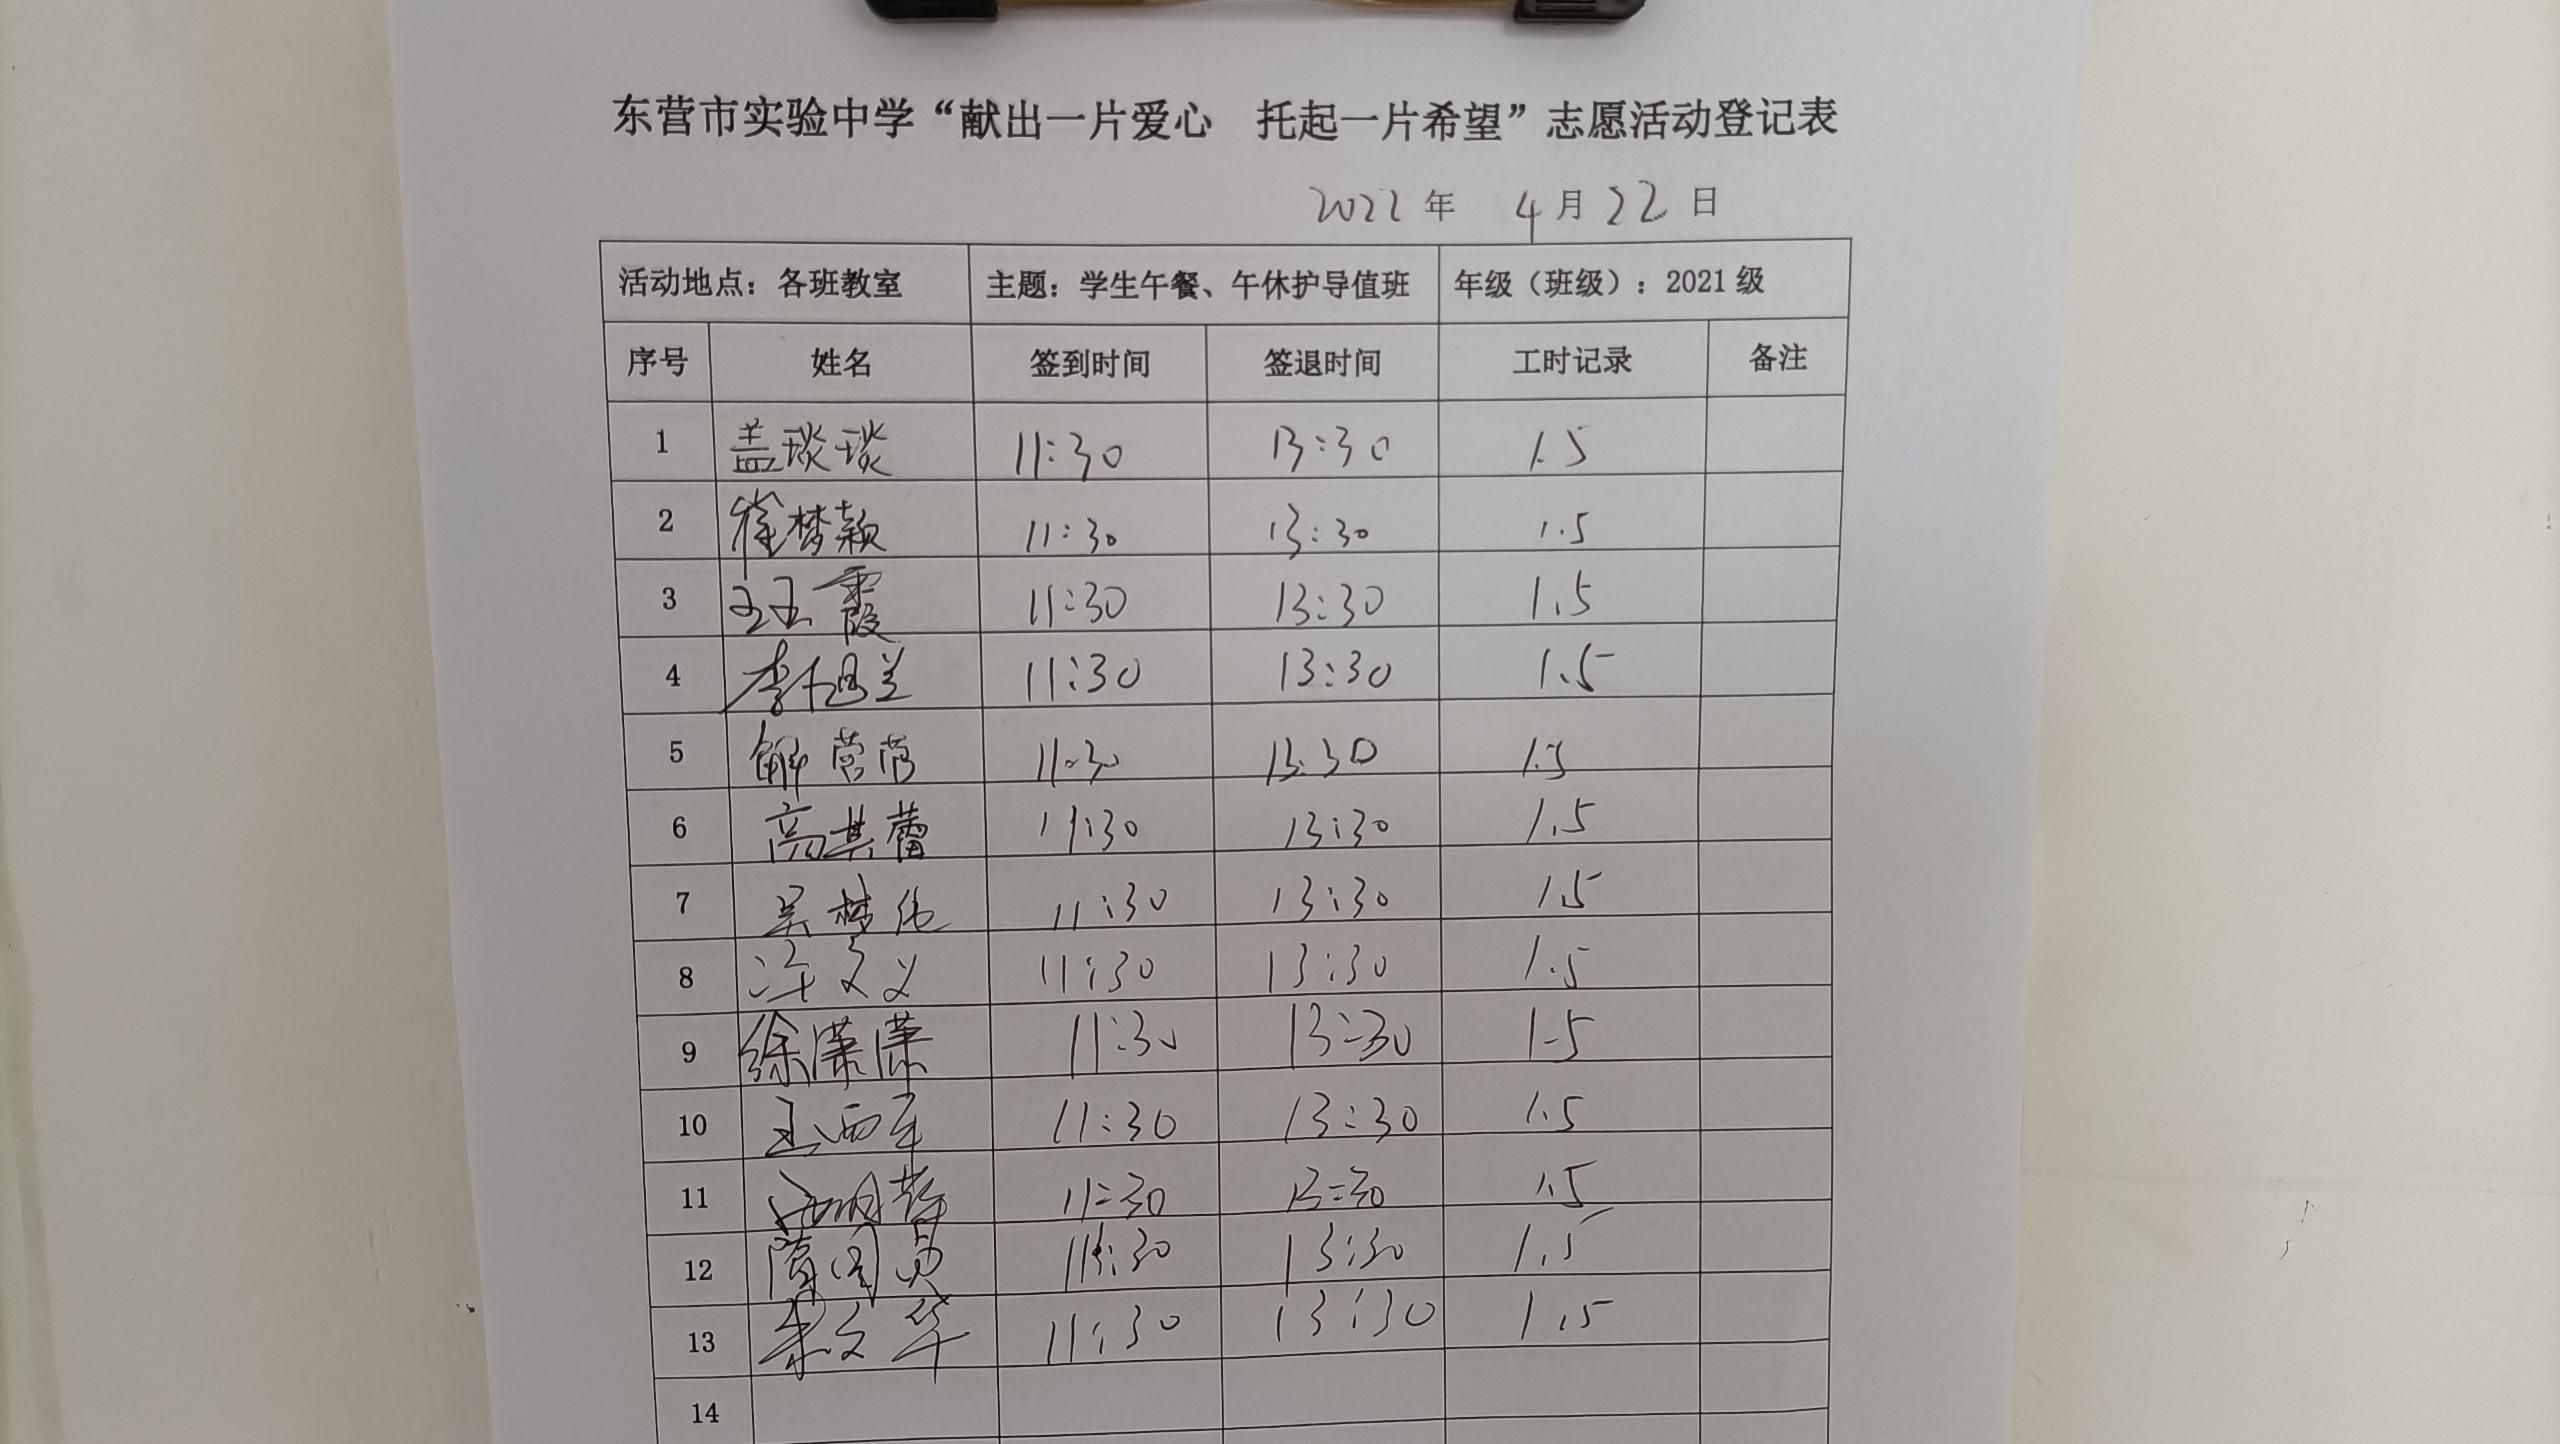 东营市实验中学“献出一片爱心 托起一片希望”志愿活动登记表
2022年 4月22日
活动地点：各班教室 主题：学生午餐、午休护导值班 年级（班级）：2021级
序号 姓名 签到时间 签退时间 工时记录 备注
1 盖琰琰 11:30 13:30 1.5
2 徐梦颖 11:30 13:30 1.5
3 王玉霞 11:30 13:30 1.5
4 11:30 13:30 1.5
5 解 11:30 13:30 1.5
6 高其蕾 11:30 13:30 1.5
7 吴梦 11:30 13:30 1.5
8 11:30 13:30 1.5
9 徐潇潇 11:30 13:30 1.5
10 王西军 11:30 13:30 1.5
11 11:30 13:30 1.5
12 隋 11:30 13:30 1.5
13 11:30 13:30 1.5
14